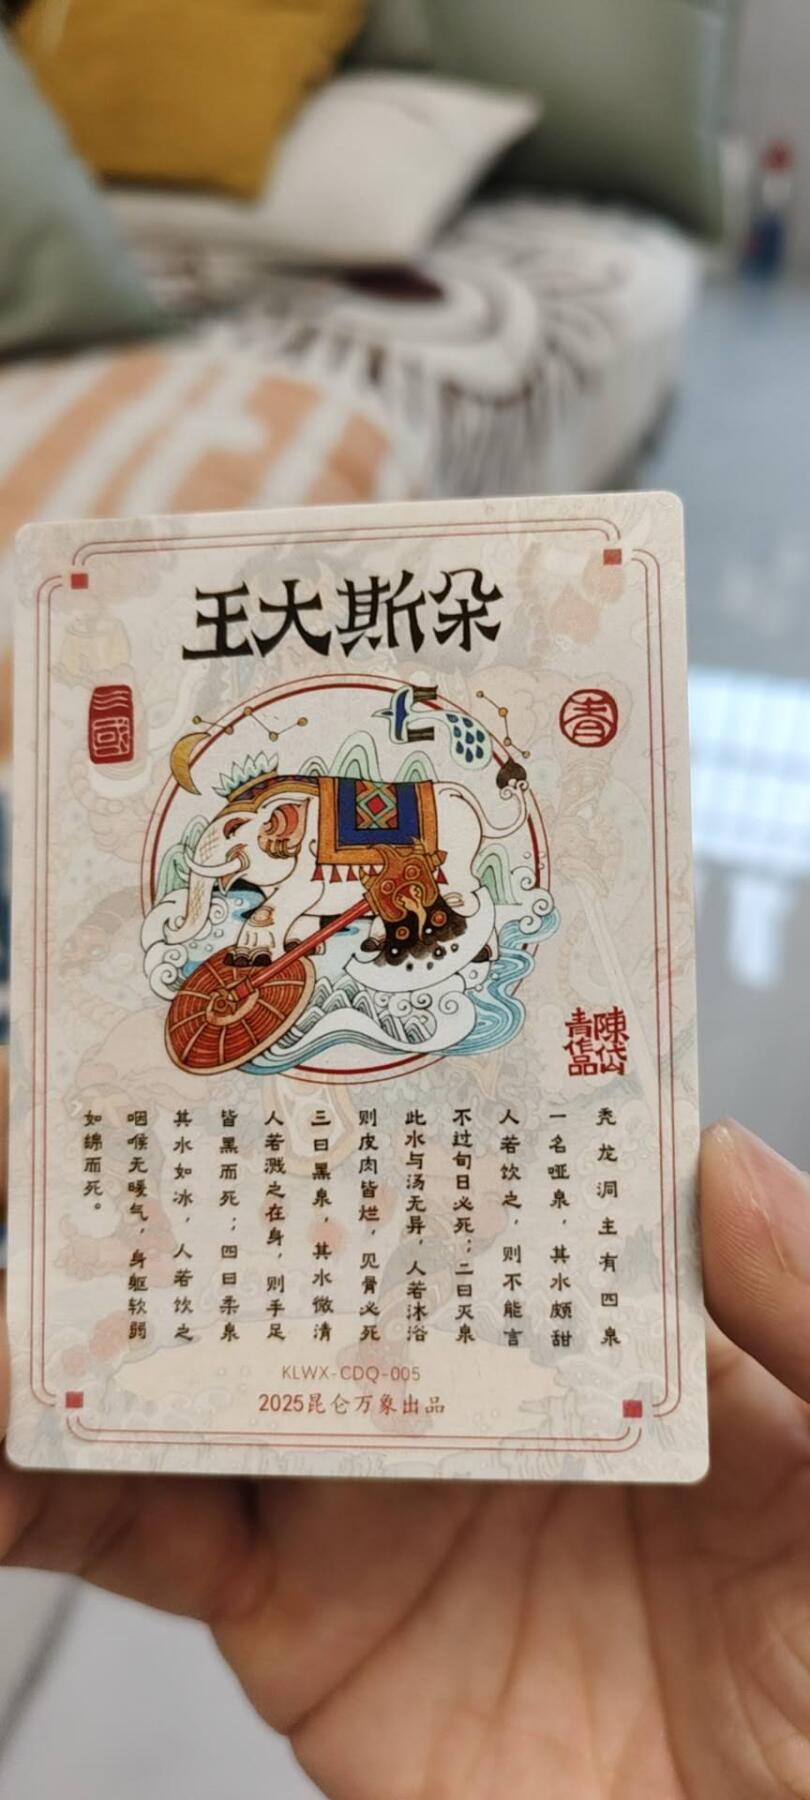 王大斯朵
三國
春
陳岱
青作品
秃龙洞主有四泉
一名哑泉，其水颇甜
人若饮之，则不能言
不过旬日必死；二曰灭泉
此水与汤无异，人若沐浴
则皮肉皆烂，见骨必死
三曰黑泉，其水微清
人若溅之在身，则手足
皆黑而死；四曰柔泉
其水如冰，人若饮之
咽喉无暖气，身躯软弱
如绵而死。
KLWX-CDQ-005
2025昆仑万象出品